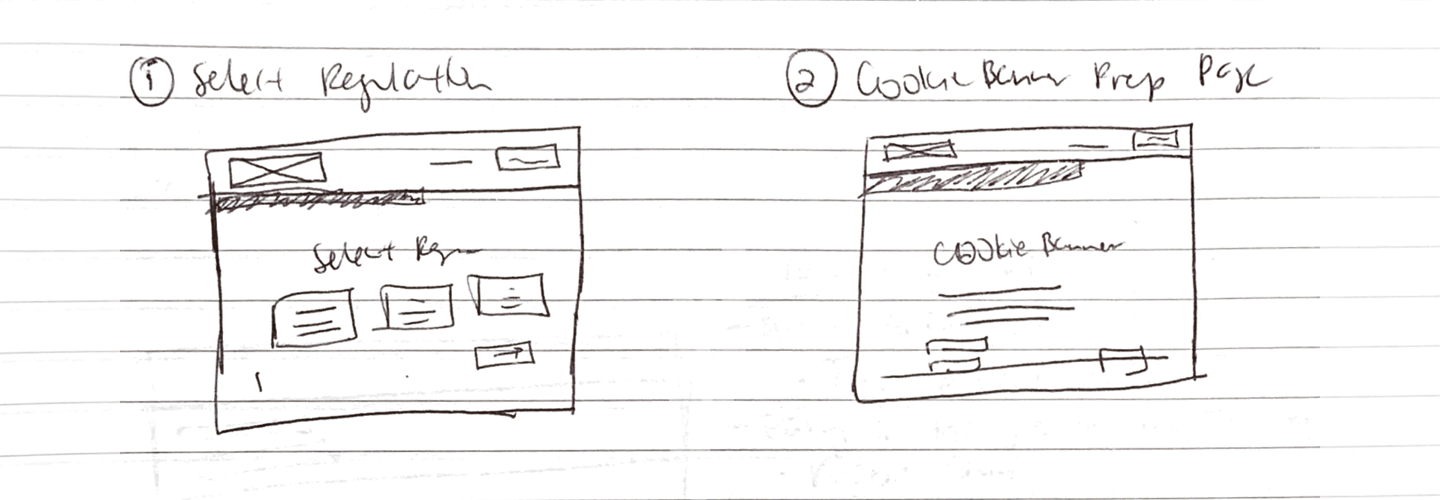 ① Select Regulation
Select Regu
② Cookie Banner Prep Page
Cookie Banner